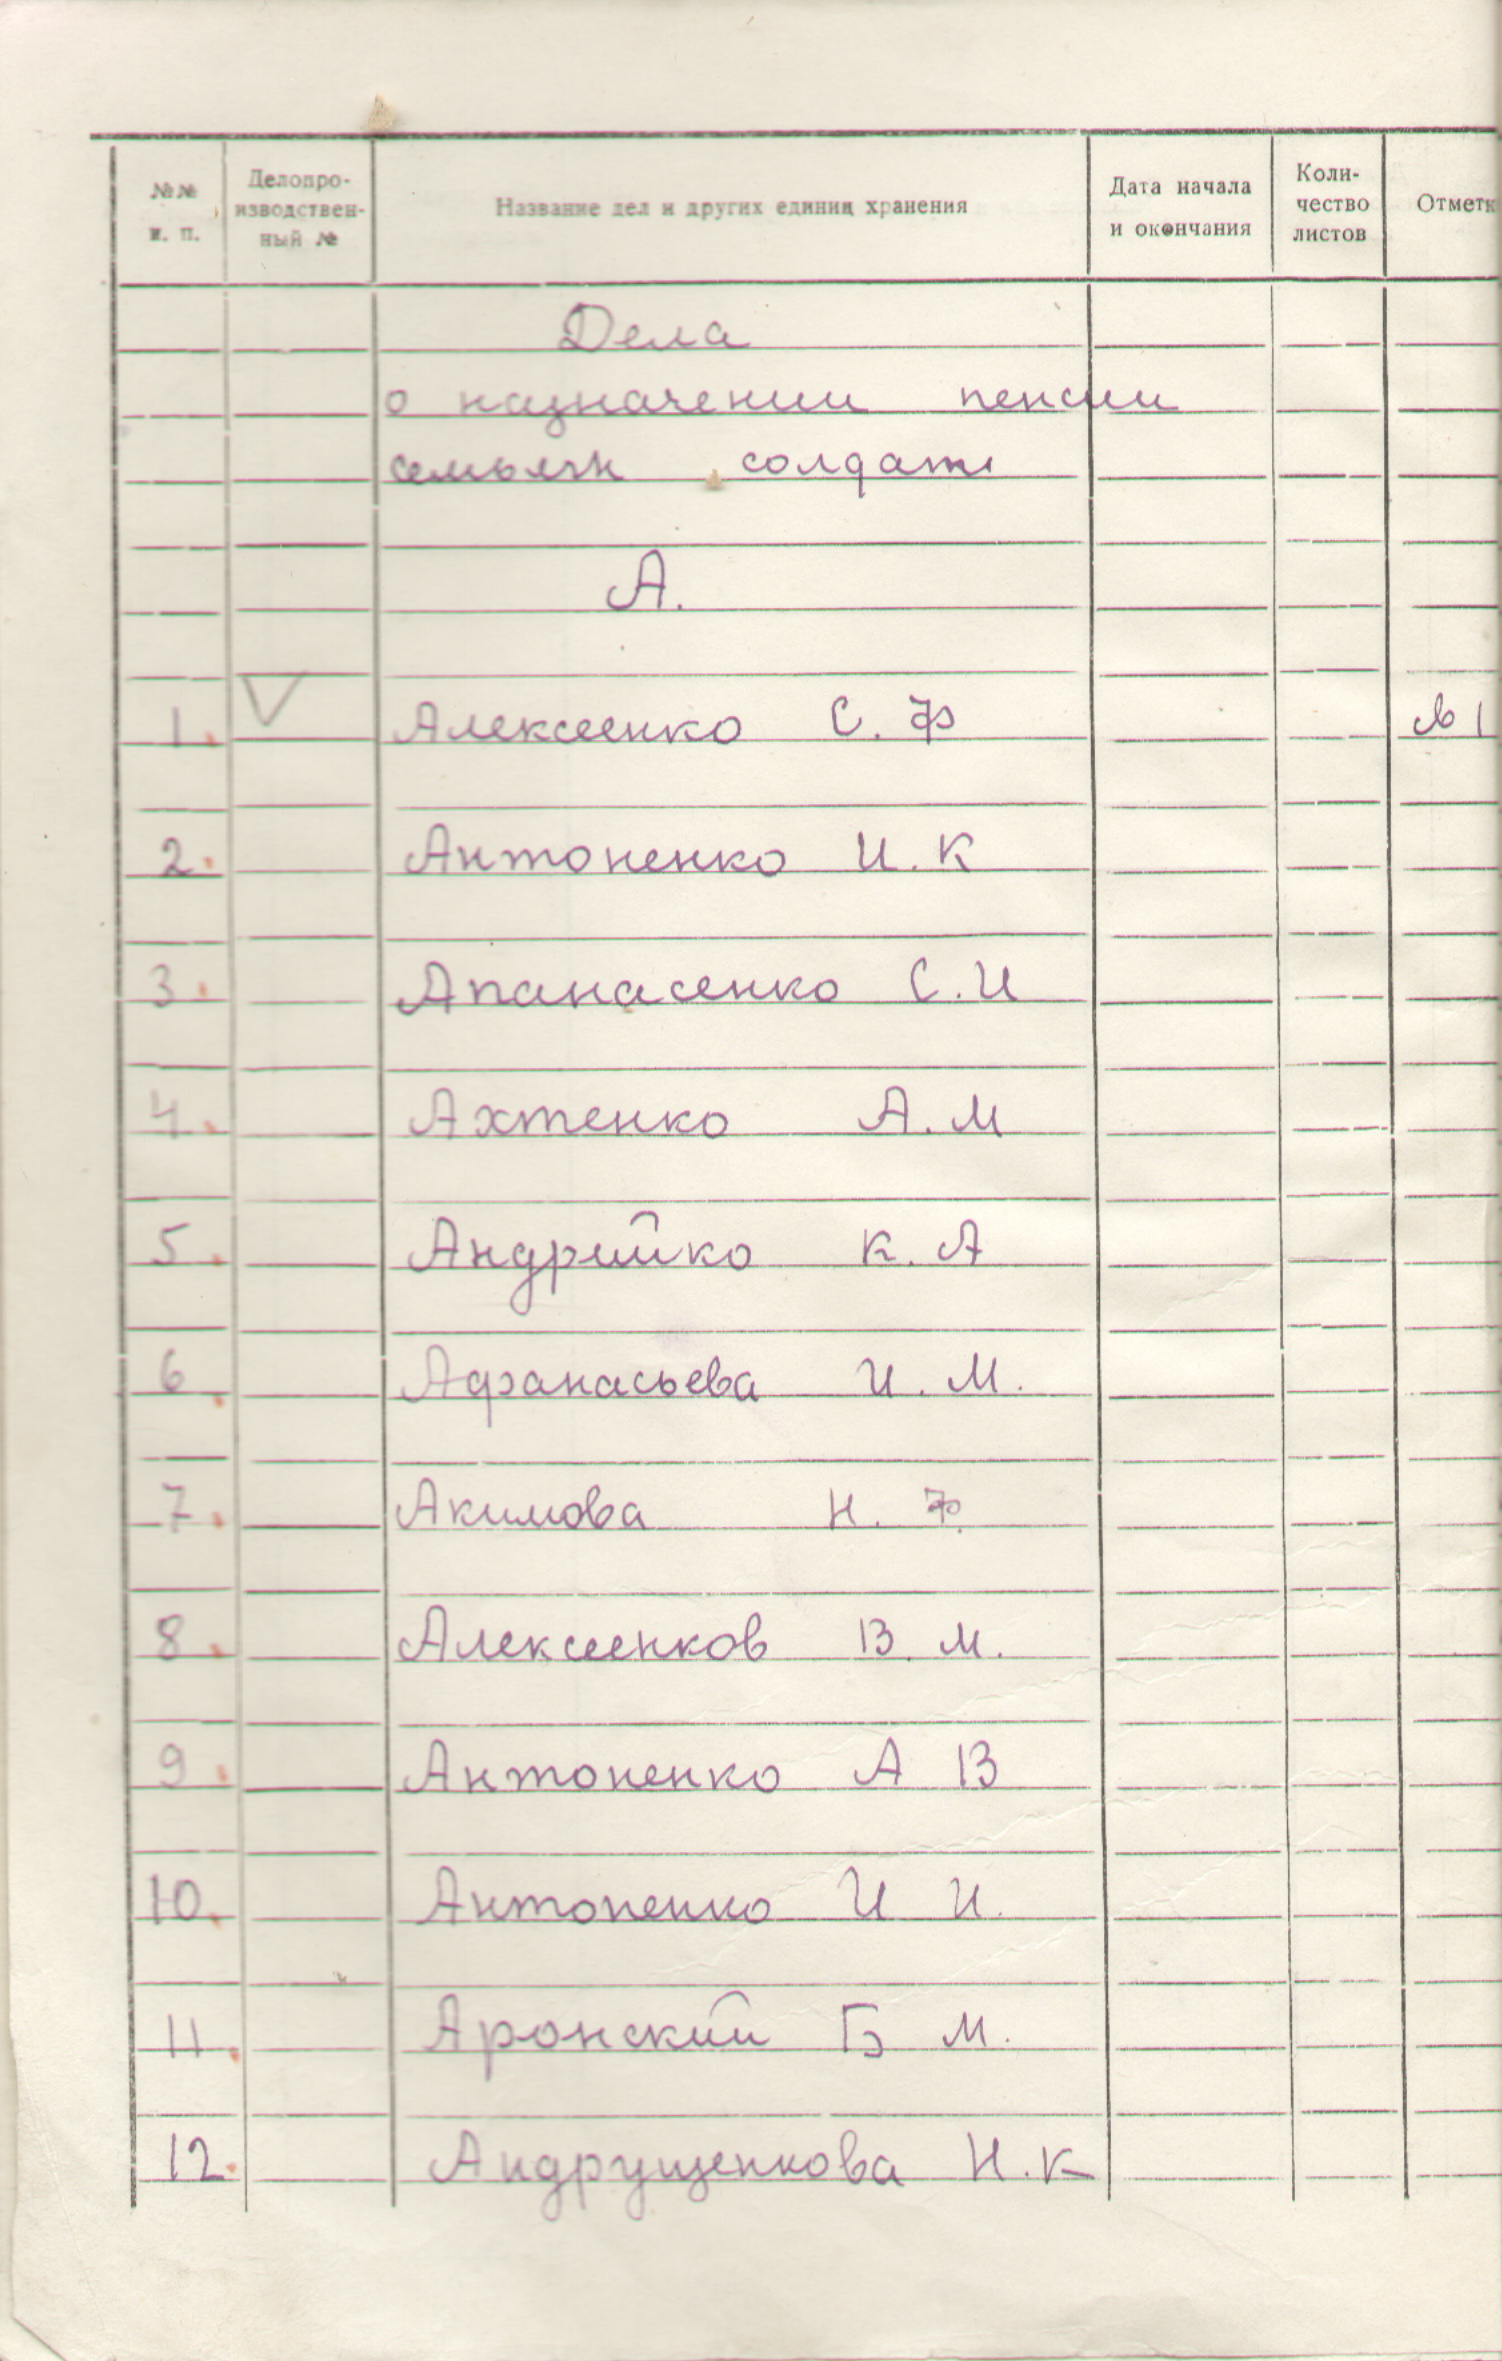 №№ п. п. Делопро- изводствен- ный № Название дел и других единиц хранения Дата начала и окончания Коли- чество листов Отметк
Дела
о назначении пенсии
семьям солдат
А.
1. V Алексеенко С. Ф №1
2. Антоненко И. К
3. Апанасенко С. И
4. Ахтенко А. М
5. Андрийко К. А
6. Афанасьева И. М.
7. Акимова Н. Ф.
8. Алексеенков В. М.
9. Антоненко А В
10. Антоненко И И.
11. Аронский Б М.
12. Андрущенкова Н. К